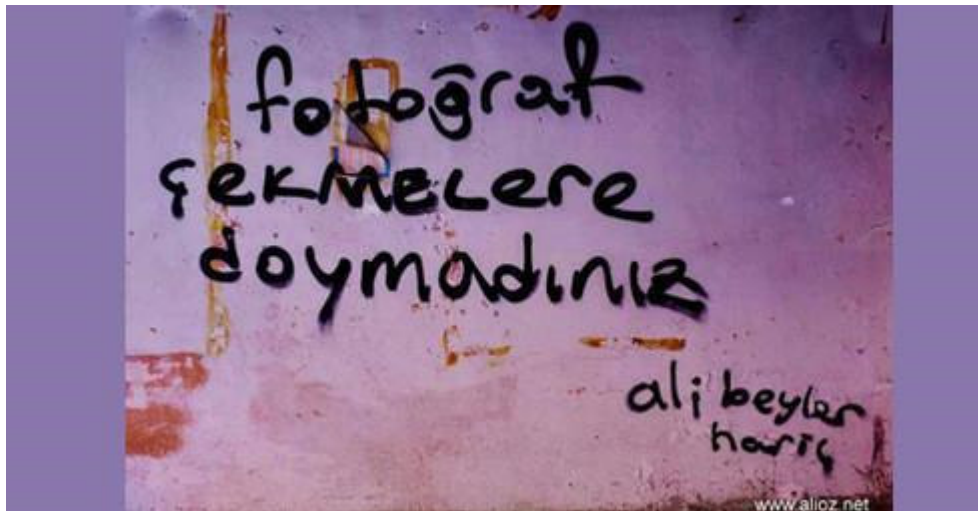 fotoğraf
çekmelere
doymadınız
ali beyler
hariç
www.alioz.net